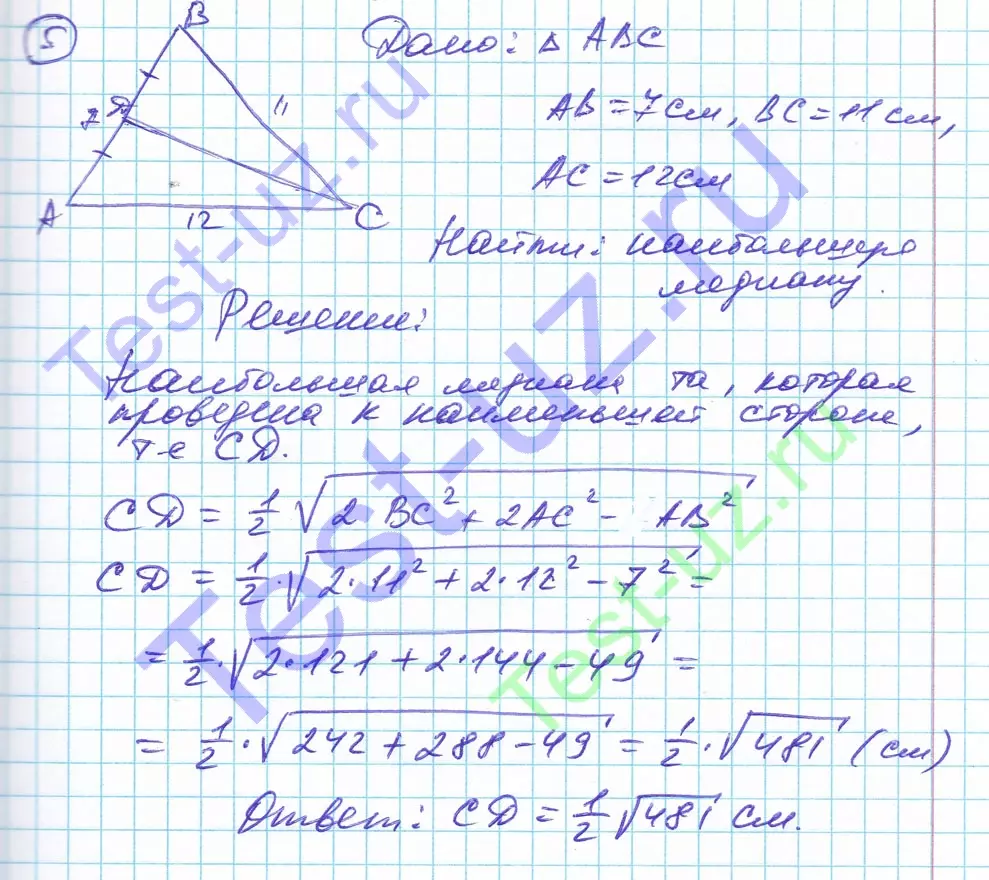 5
B
Дано: Δ ABC
7 Д
11
AB = 7см, BC = 11 см,
AC = 12см
A
12
C
Найти: наибольшую
медиану.
Решение:
Наибольшая медиана та, которая
проведена к наименьшей стороне,
т-е CД.
CД = 1/2 √(2 BC² + 2AC² - AB²)
CД = 1/2 · √(2·11² + 2·12² - 7²) =
= 1/2 · √(2·121 + 2·144 - 49) =
= 1/2 · √(242 + 288 - 49) = 1/2 · √481 (см)
Ответ: CД = 1/2 √481 см.
Test-uz.ru
Test-uz.ru
Test-uz.ru